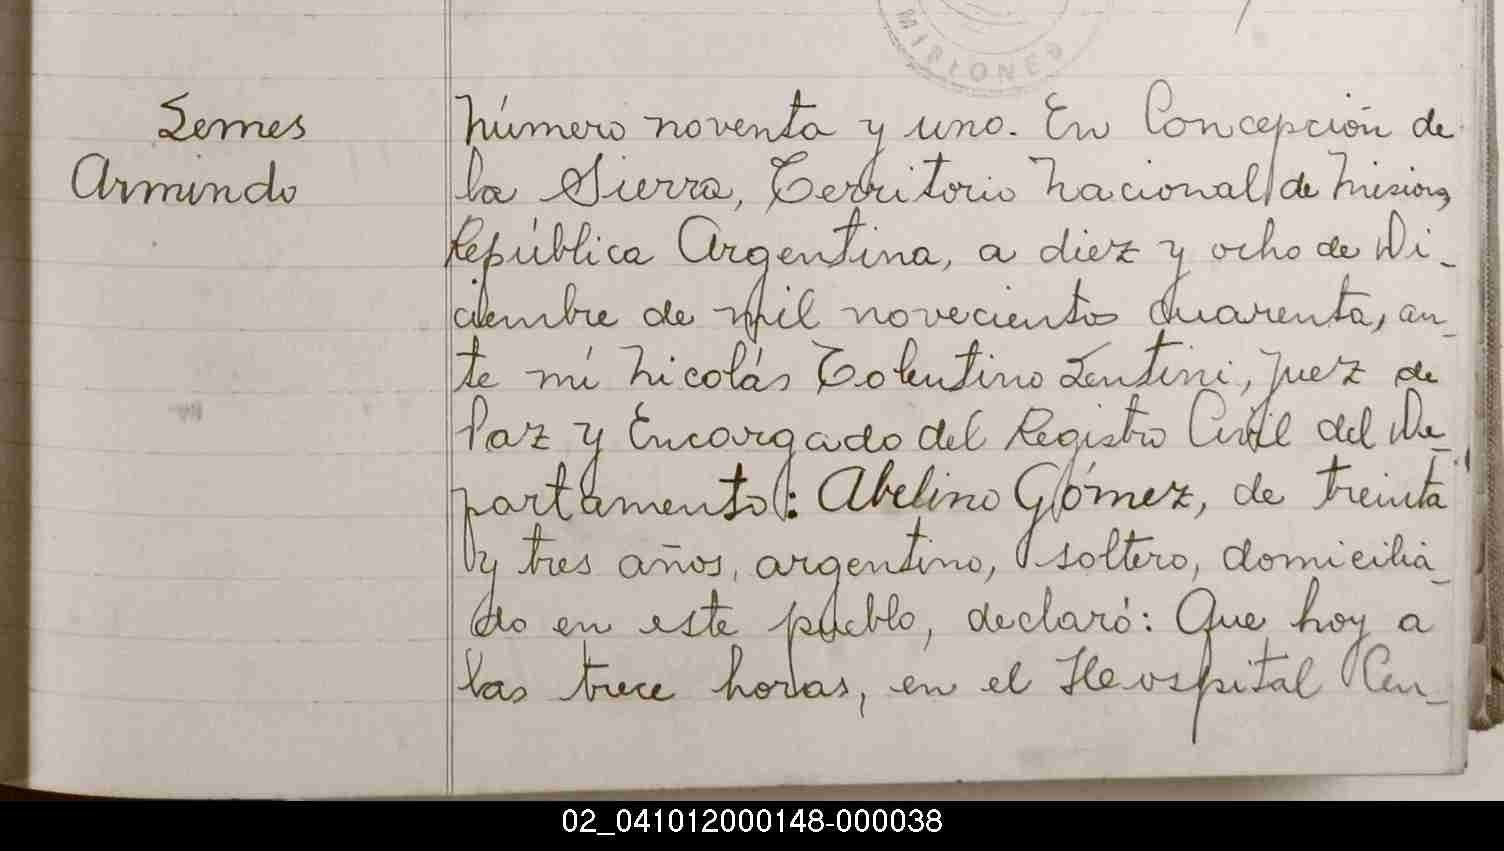 MISIONES
Lemes
Armindo
Número noventa y uno. En Concepción de
la Sierra, Territorio Nacional de Misiones,
República Argentina, a diez y ocho de Di-
ciembre de mil novecientos cuarenta, an-
te mí Nicolás Tolentino Lentini, Juez de
Paz y Encargado del Registro Civil del De-
partamento: Abelino Gómez, de treinta
y tres años, argentino, soltero, domicilia-
do en este pueblo, declaró: Que hoy a
las trece horas, en el Hospital Cen-
02_041012000148-000038